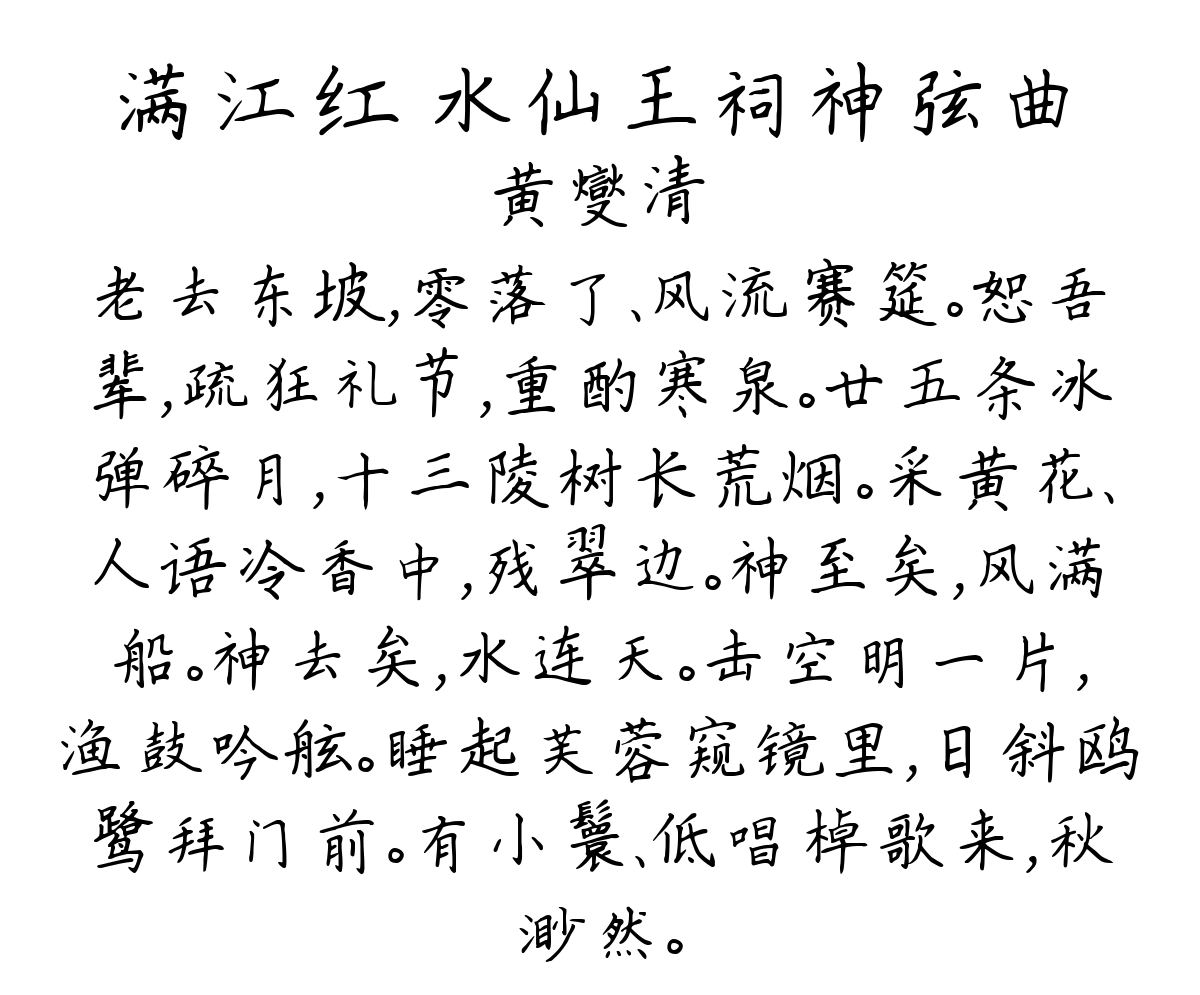 满江红 水仙王祠神弦曲
黄燮清
老去东坡,零落了、风流赛筵。恕吾
辈,疏狂礼节,重酌寒泉。廿五条冰
弹碎月,十三陵树长荒烟。采黄花、
人语冷香中,残翠边。神至矣,风满
船。神去矣,水连天。击空明一片,
渔鼓吟舷。睡起芙蓉窥镜里,日斜鸥
鹭拜门前。有小鬟、低唱棹歌来,秋
渺然。